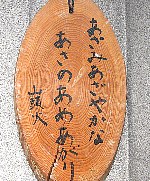 あざみあざやかな
あさのあめあがり
山頭火